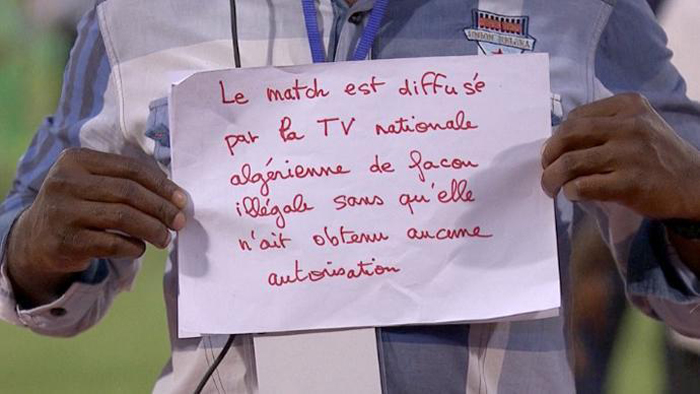 Le match est diffusé
par la TV nationale
algérienne de facon
illégale sans qu'elle
n'ait obtenu aucune
autorisation